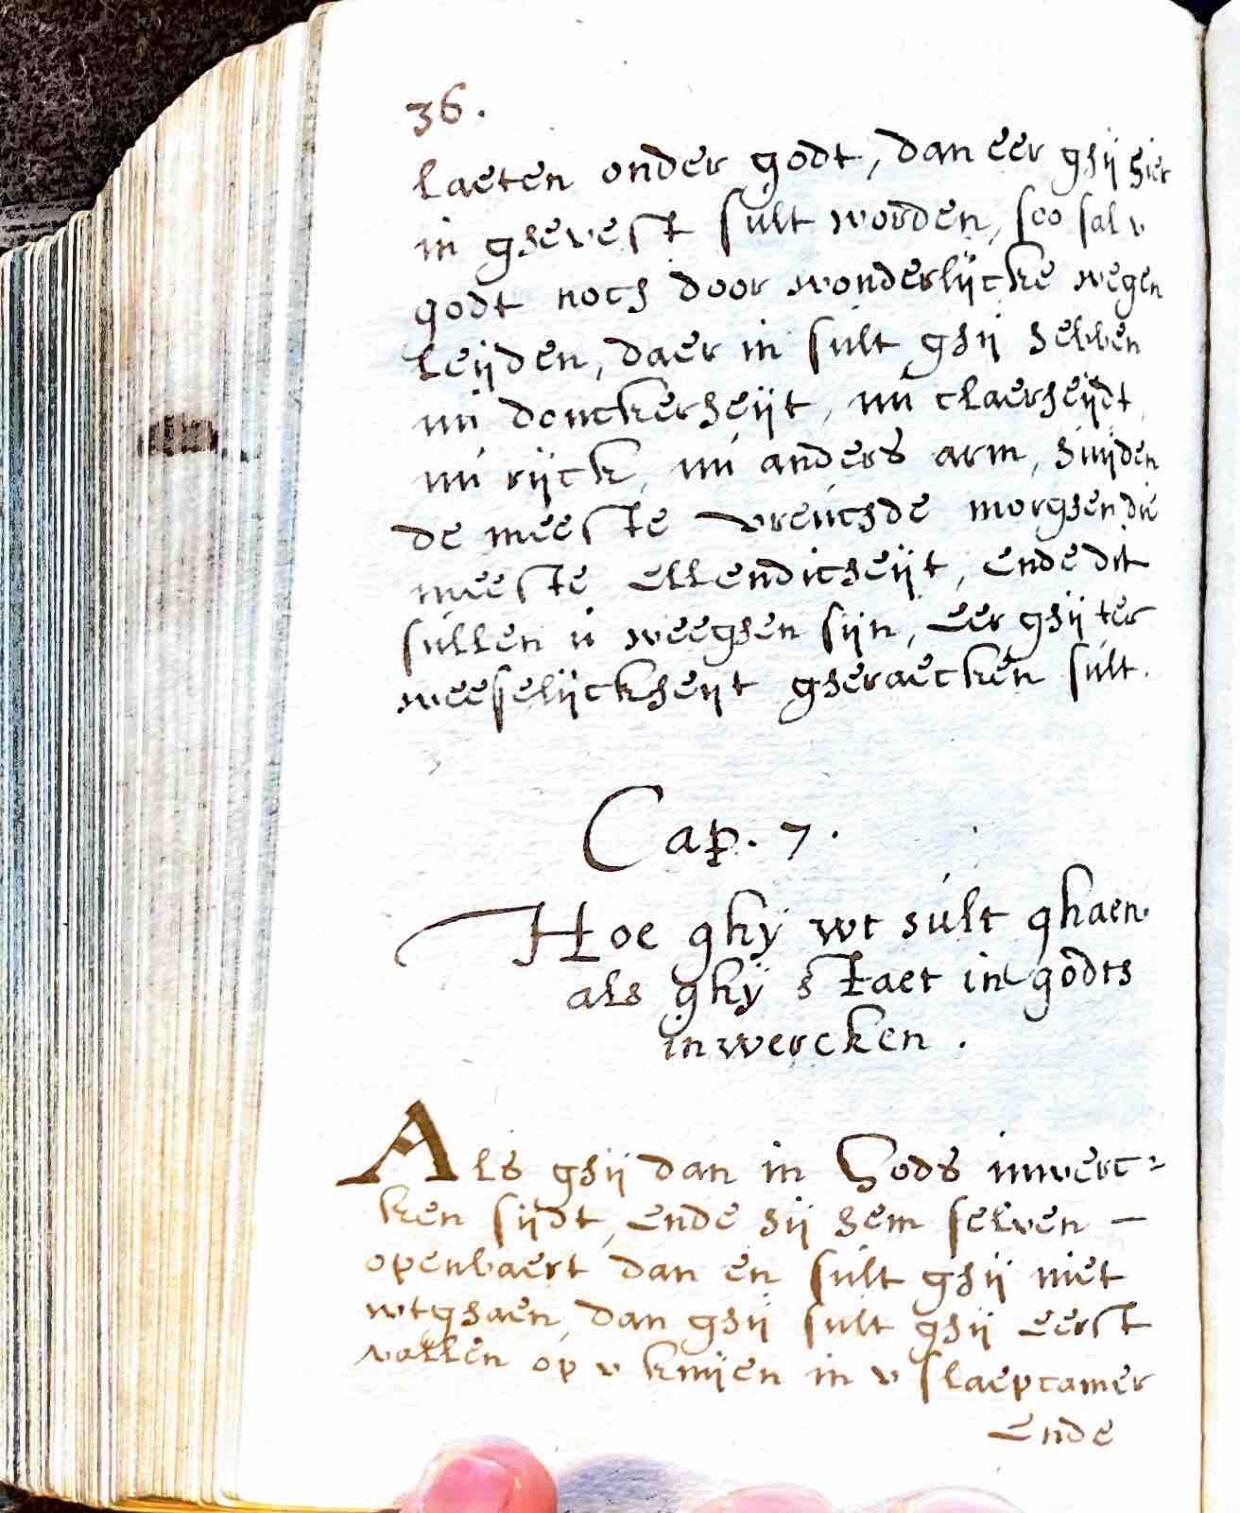 36.
laeten onder godt, dan eer ghij hier
in ghevest sult worden, soo sal v
godt noch door wonderlijcke wegen
leijden, daer in sult ghij hebben
nú donckerheijt, nú claerheijdt,
nú rijck, nú anders arm, huijden
de meeste vreúchde morghen die
meeste ellendicheijt, ende dit
súllen ú weeghen sijn, eer ghij ter
weeselijckheijt gheraecken súlt.
Cap. 7.
Hoe ghy wt súlt ghaen
als ghy staet in godts
inwercken.
Als ghij dan in Gods inwerc-
ken sijdt, ende hij hem selven
openbaert dan en súlt ghij niet
wtghaen, dan ghij súlt ghij eerst
vallen op v knijen in v slaepcamer
Ende